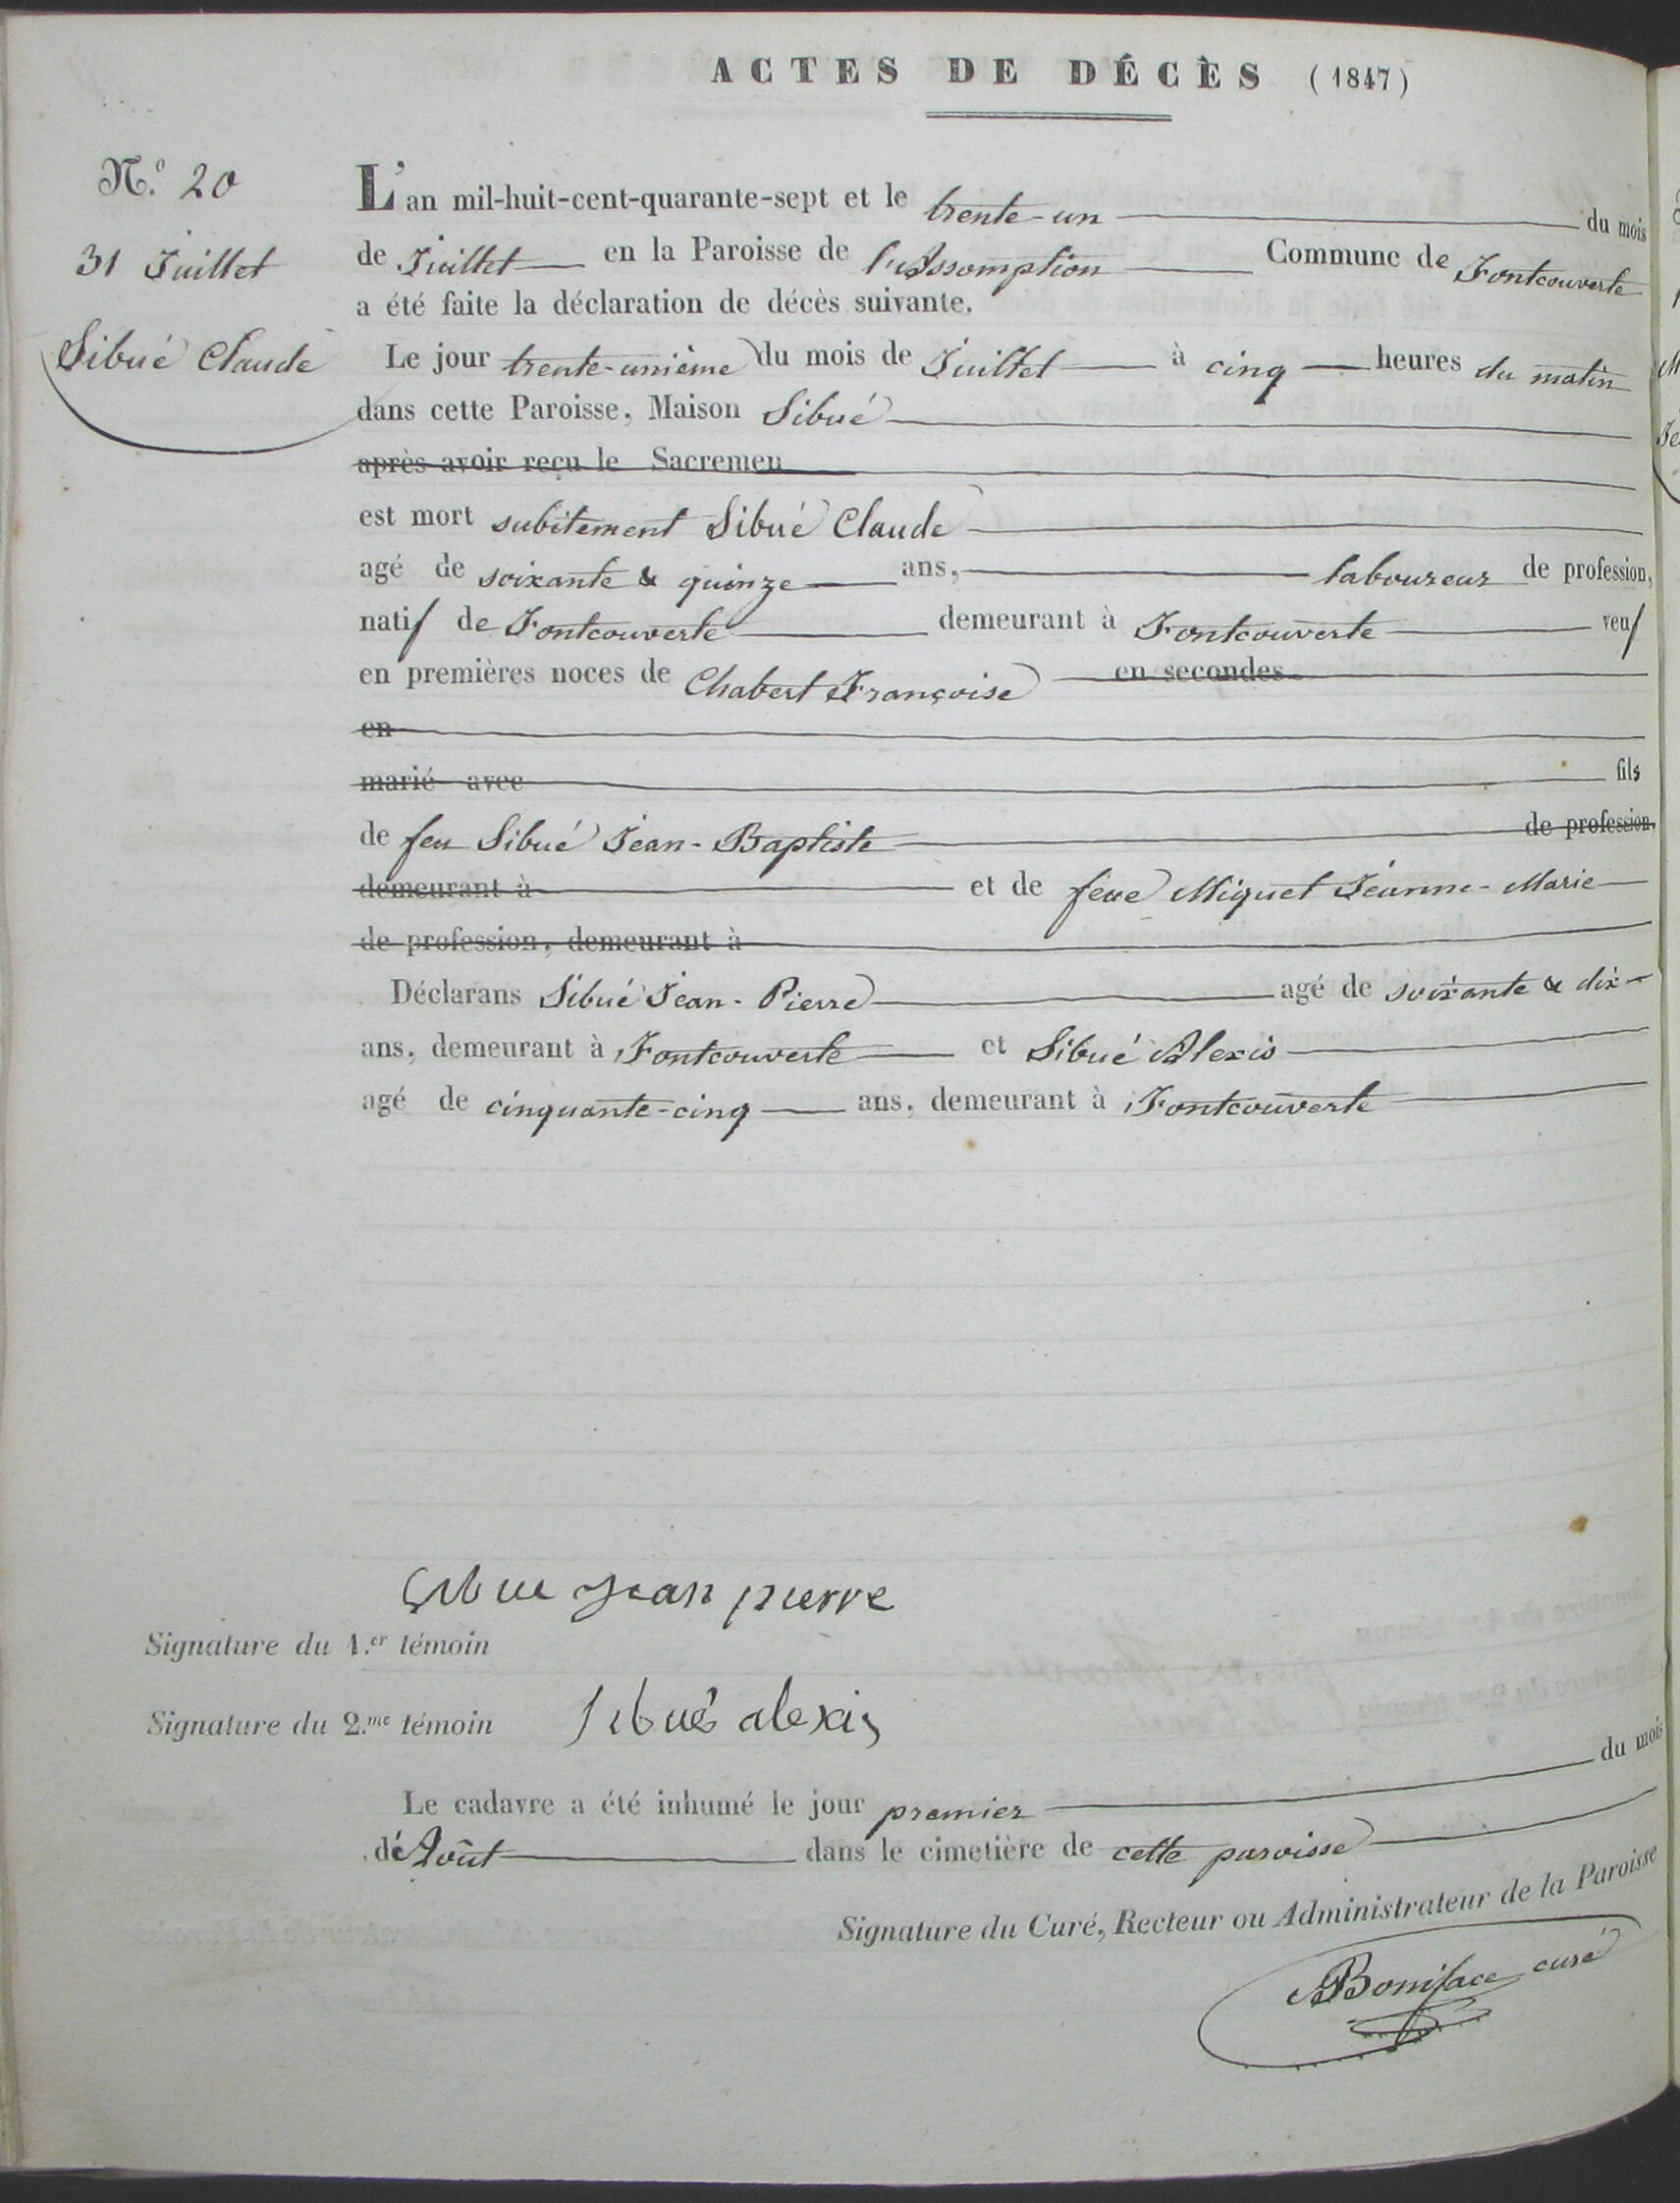 ACTES DE DÉCÈS (1847)
N.º 20
31 Juillet
Sibué Claude
L'an mil-huit-cent-quarante-sept et le trente-un du mois
de Juillet en la Paroisse de l'Assomption Commune de Fontcouverte
a été faite la déclaration de décès suivante.
Le jour trente-unième du mois de Juillet à cinq heures du matin
dans cette Paroisse, Maison Sibué
après avoir reçu le Sacremen
est mort subitement Sibué Claude
agé de soixante & quinze ans, laboureur de profession,
natif de Fontcouverte demeurant à Fontcouverte veuf
en premières noces de Chabert Françoise en secondes
en
marié avec fils
de feu Sibué Jean-Baptiste de profession,
demeurant à et de feue Miquet Jeanne-Marie
de profession, demeurant à
Déclarans Sibué Jean-Pierre agé de soixante & dix
ans, demeurant à Fontcouverte et Sibué Alexis
agé de cinquante-cinq ans, demeurant à Fontcouverte
Sibue jean pierre
Signature du 1.er témoin
Signature du 2.me témoin Sibué alexis
Le cadavre a été inhumé le jour premier du mois
d'Août dans le cimetière de cette paroisse
Signature du Curé, Recteur ou Administrateur de la Paroisse
Boniface curé